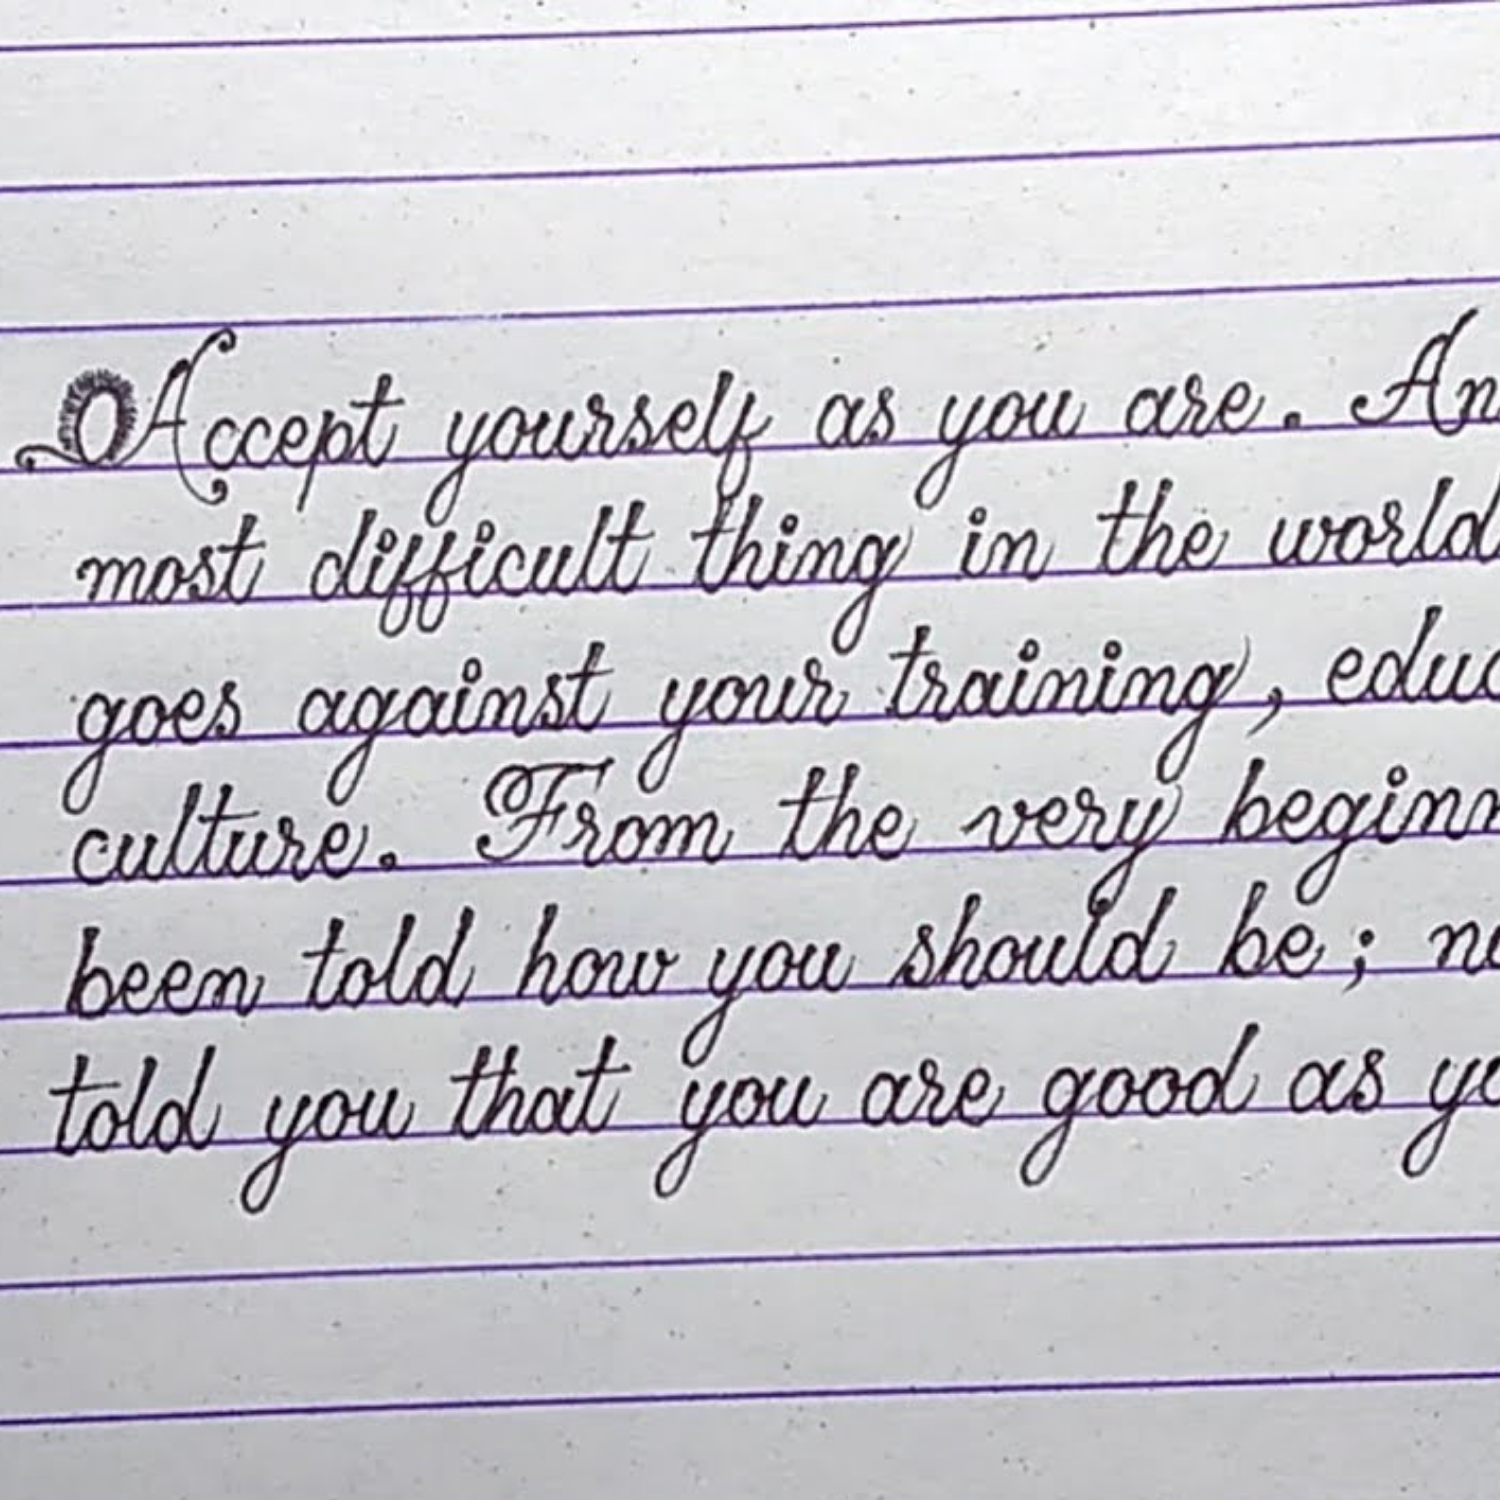 Accept yourself as you are. An
most difficult thing in the world
goes against your training, educ
culture. From the very beginn
been told how you should be; no
told you that you are good as yo